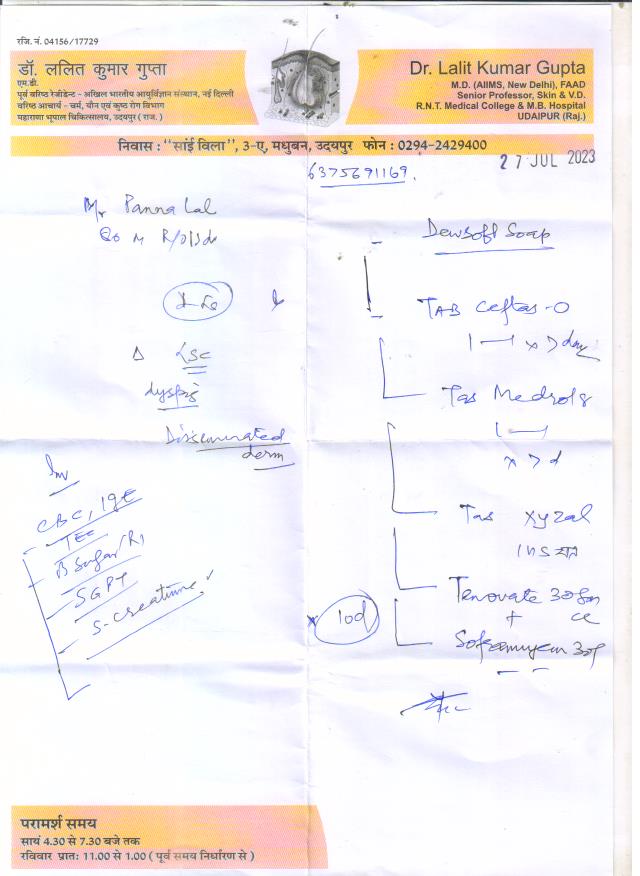 रजि. नं. 04156/17729
डॉ. ललित कुमार गुप्ता
एम.डी.
पूर्व वरिष्ठ रेजीडेन्ट - अखिल भारतीय आयुर्विज्ञान संस्थान, नई दिल्ली
वरिष्ठ आचार्य - चर्म, यौन एवं कुष्ठ रोग विभाग
महाराणा भूपाल चिकित्सालय, उदयपुर (राज.)
Dr. Lalit Kumar Gupta
M.D. (AIIMS, New Delhi), FAAD
Senior Professor, Skin & V.D.
R.N.T. Medical College & M.B. Hospital
UDAIPUR (Raj.)
निवास : "सांई विला", 3-ए, मधुबन, उदयपुर फोन : 0294-2429400
27 JUL 2023
6375691169.
Mr Panna Lal
Δ LSC
Disseminated
derm
Inv
CBC, IgE
TEC
B Sugar/R,
SGPT
S-Creatinine
Dewsoft Soap
TAB Ceftas-O
1—1 x 7 day
Tab Medrol 8
1—1
x 7 d
Tab Xyzal
Tenovate 30gm
+
Soframycin 30g
10d
परामर्श समय
सायं 4.30 से 7.30 बजे तक
रविवार प्रातः 11.00 से 1.00 ( पूर्व समय निर्धारण से )